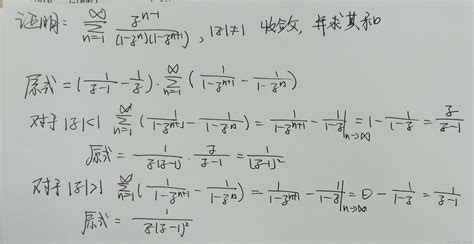 证明: $\sum_{n=1}^{\infty} \frac{z^{n-1}}{(1-z^n)(1-z^{n+1})}$, |z|≠1 收敛, 并求其和
原式 = $(\frac{1}{z-1} - \frac{1}{z}) \cdot \sum_{n=1}^{\infty} (\frac{1}{1-z^{n+1}} - \frac{1}{1-z^n})$
对于|z|<1 $\sum_{n=1}^{\infty} (\frac{1}{1-z^{n+1}} - \frac{1}{1-z^n}) = \frac{1}{1-z^{n+1}} - \frac{1}{1-z}|_{n→∞} = 1 - \frac{1}{1-z} = \frac{z}{z-1}$
原式 = $\frac{1}{z(z-1)} \cdot \frac{z}{z-1} = \frac{1}{(z-1)^2}$
对于|z|>1 $\sum_{n=1}^{\infty} (\frac{1}{1-z^{n+1}} - \frac{1}{1-z^n}) = \frac{1}{1-z^{n+1}} - \frac{1}{1-z}|_{n→∞} = 0 - \frac{1}{1-z} = \frac{1}{z-1}$
原式 = $\frac{1}{z(z-1)^2}$